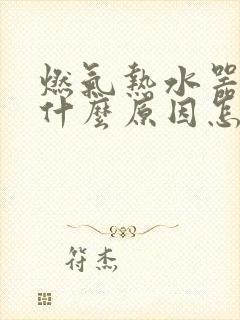 燃氣熱水器
什麼原因怎
符杰